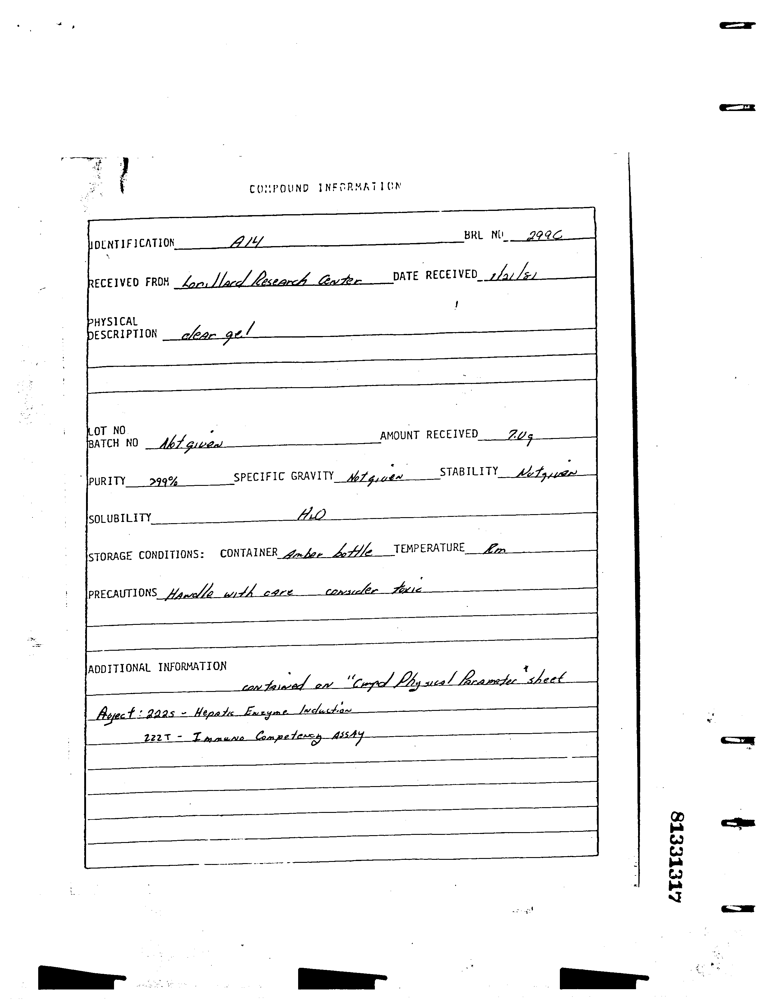 COMPOUND INFORMATION
IDENTIFICATION A14 BRL NO 299C
RECEIVED FROM Lorillard Research Center DATE RECEIVED 1/21/81
PHYSICAL
DESCRIPTION clear gel
LOT NO
BATCH NO Not given AMOUNT RECEIVED 7.0g
PURITY >99% SPECIFIC GRAVITY Not given STABILITY Not given
SOLUBILITY H2O
STORAGE CONDITIONS: CONTAINER Amber bottle TEMPERATURE Rm
PRECAUTIONS Handle with care consider toxic
ADDITIONAL INFORMATION
contained on "Cmpd Physical Parameter" sheet
Project: 222S - Hepatic Enzyme Induction
222T - Immuno Competency ASSAY
81331317